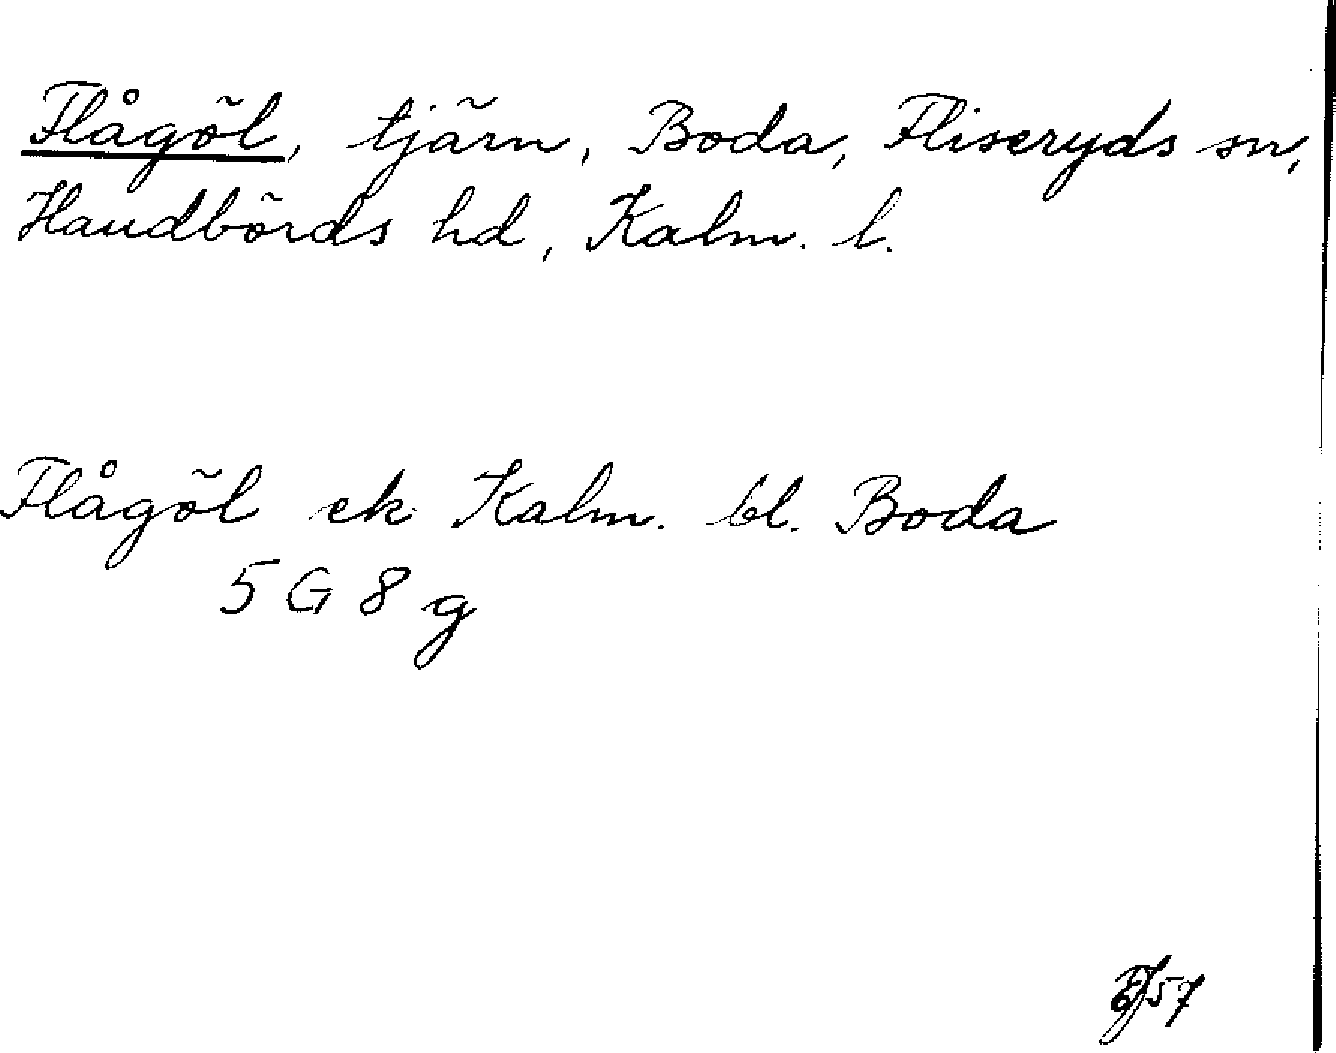 Flågöl, tjärn, Boda, Fliseryds sn,
Handbörds hd, Kalm. l.
Flågöl ek Kalm. bl. Boda
5 G 8 g
57